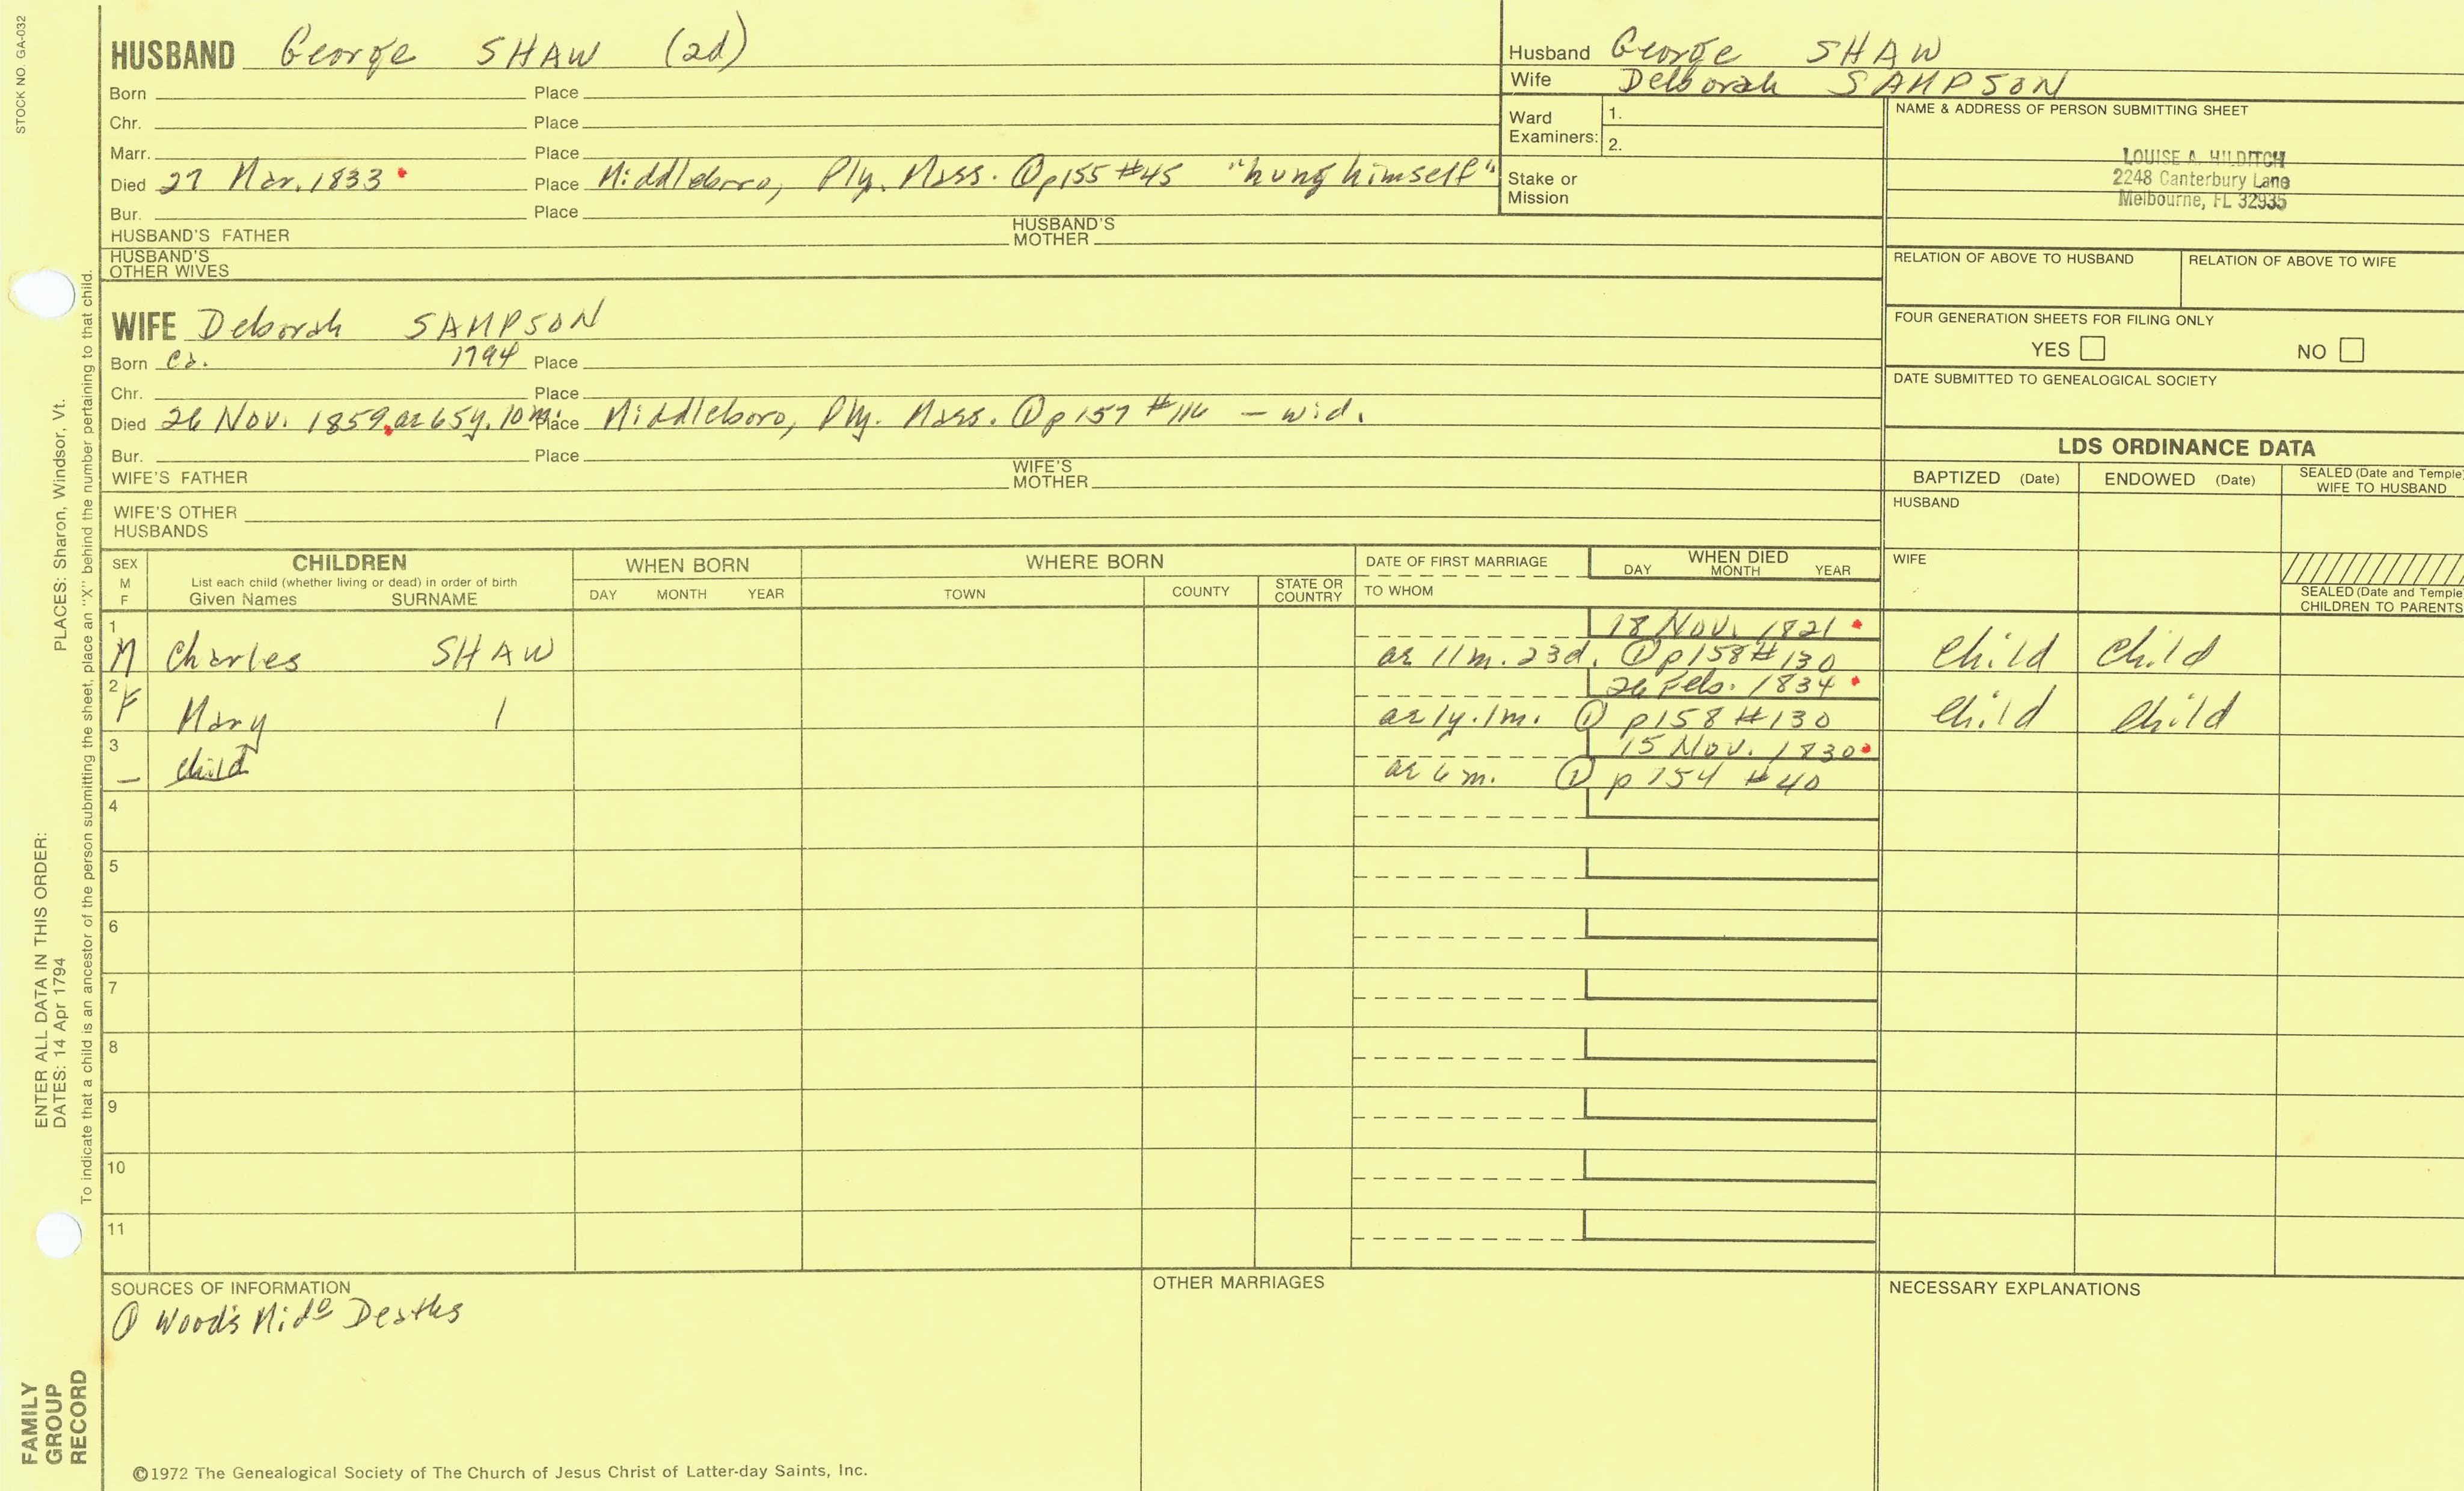 STOCK NO. GA-032
HUSBAND George SHAW (2d)
Born Place
Chr. Place
Marr. Place
Died 27 Mar. 1833 Place Middleboro, Ply. Mass. ① p155 #45 "hung himself"
Bur. Place
HUSBAND'S FATHER HUSBAND'S MOTHER
HUSBAND'S OTHER WIVES
Husband George SHAW
Wife Deborah SAMPSON
Ward Examiners: 1.
2.
Stake or Mission
NAME & ADDRESS OF PERSON SUBMITTING SHEET
LOUISE A. HILDITCH
2248 Canterbury Lane
Melbourne, FL 32935
RELATION OF ABOVE TO HUSBAND RELATION OF ABOVE TO WIFE
FOUR GENERATION SHEETS FOR FILING ONLY
YES NO
DATE SUBMITTED TO GENEALOGICAL SOCIETY
WIFE Deborah SAMPSON
Born ca. 1794 Place
Chr. Place
Died 26 Nov. 1859 ae 65y. 10m. Place Middleboro, Ply. Mass. ① p157 #116 - wid.
Bur. Place
WIFE'S FATHER WIFE'S MOTHER
WIFE'S OTHER HUSBANDS
LDS ORDINANCE DATA
BAPTIZED (Date) ENDOWED (Date) SEALED (Date and Temple) WIFE TO HUSBAND
HUSBAND
WIFE
SEALED (Date and Temple) CHILDREN TO PARENTS
SEX M F CHILDREN List each child (whether living or dead) in order of birth Given Names SURNAME
WHEN BORN DAY MONTH YEAR
WHERE BORN TOWN COUNTY STATE OR COUNTRY
DATE OF FIRST MARRIAGE TO WHOM
WHEN DIED DAY MONTH YEAR
1 18 Nov. 1821
M Charles SHAW ae 11m. 23d. ① p158 #130 child child
2 26 Feb. 1834
F Mary ae 1y. 1m. ① p158 #130 child child
3 15 Nov. 1830
- child ae 6m. ① p154 #40
4
5
6
7
8
9
10
11
SOURCES OF INFORMATION
① Wood's Mido Deaths
OTHER MARRIAGES
NECESSARY EXPLANATIONS
©1972 The Genealogical Society of The Church of Jesus Christ of Latter-day Saints, Inc.
FAMILY GROUP RECORD
ENTER ALL DATA IN THIS ORDER:
DATES: 14 Apr 1794 PLACES: Sharon, Windsor, Vt.
To indicate that a child is an ancestor of the person submitting the sheet, place an "X" behind the number pertaining to that child.